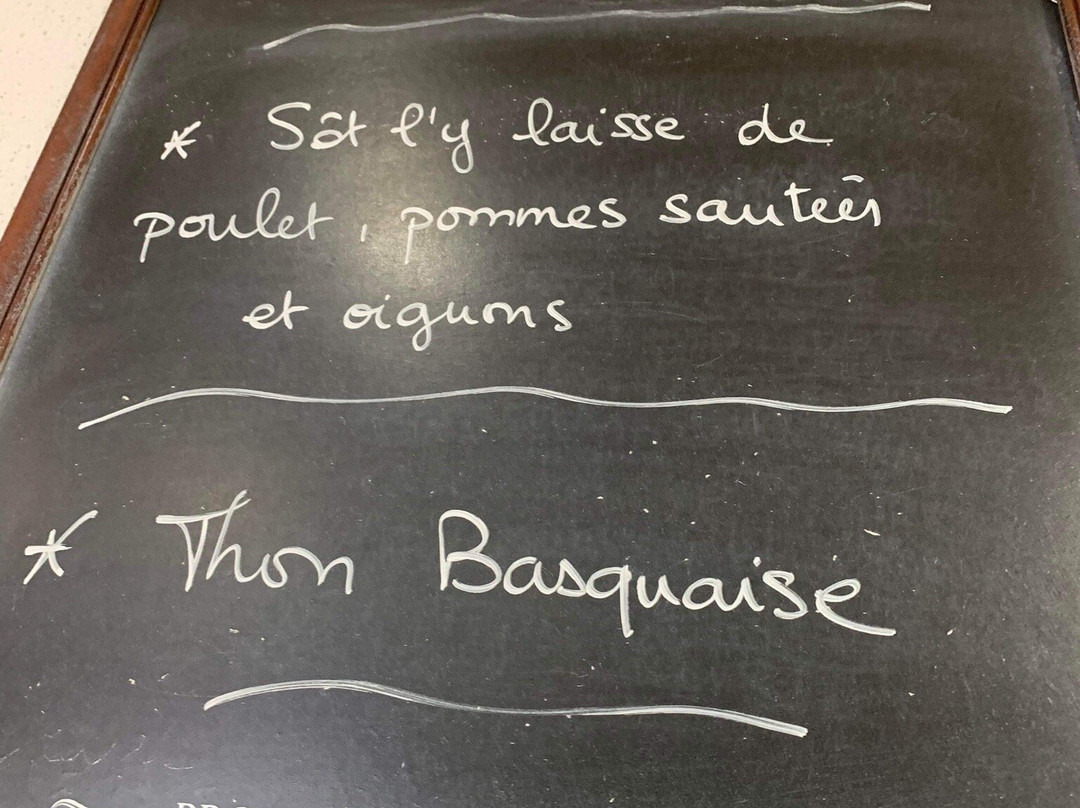 * Sôt l'y laisse de
poulet, pommes sautées
et oignons
* Thon Basquaise